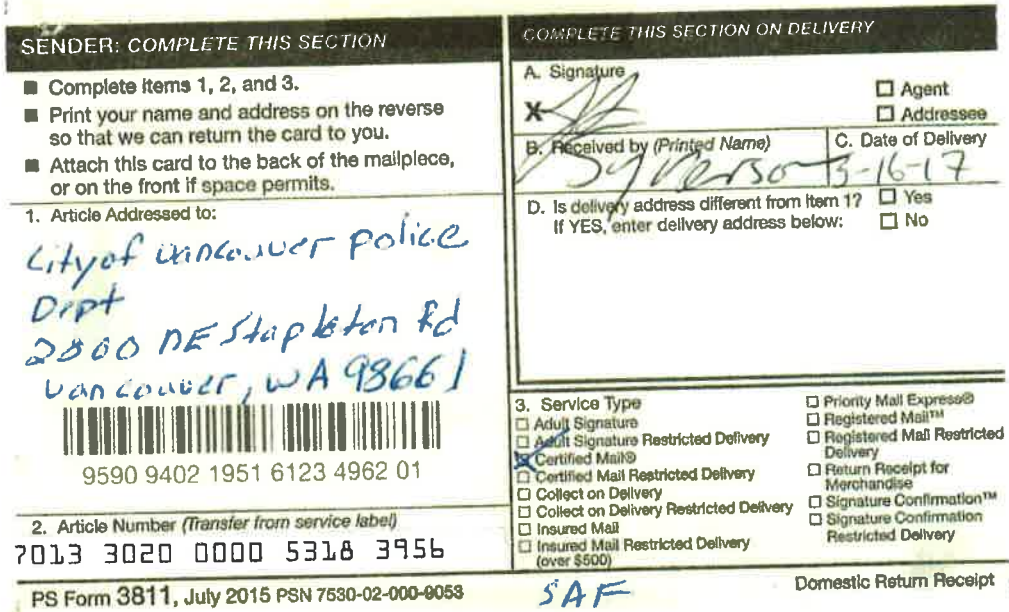 SENDER: COMPLETE THIS SECTION
■ Complete items 1, 2, and 3.
■ Print your name and address on the reverse
so that we can return the card to you.
■ Attach this card to the back of the mailpiece,
or on the front if space permits.
1. Article Addressed to:
City of Vancouver Police
Dept
2800 NE Stapleton Rd
Vancouver, WA 98661
9590 9402 1951 6123 4962 01
2. Article Number (Transfer from service label)
7013 3020 0000 5318 3956
PS Form 3811, July 2015 PSN 7530-02-000-9053
COMPLETE THIS SECTION ON DELIVERY
A. Signature
X
☐ Agent
☐ Addressee
B. Received by (Printed Name)
C. Date of Delivery
3-16-17
D. Is delivery address different from item 1? ☐ Yes
If YES, enter delivery address below: ☐ No
3. Service Type
☐ Adult Signature
☐ Adult Signature Restricted Delivery
☒ Certified Mail®
☐ Certified Mail Restricted Delivery
☐ Collect on Delivery
☐ Collect on Delivery Restricted Delivery
☐ Insured Mail
☐ Insured Mail Restricted Delivery
(over $500)
☐ Priority Mail Express®
☐ Registered Mail™
☐ Registered Mail Restricted
Delivery
☐ Return Receipt for
Merchandise
☐ Signature Confirmation™
☐ Signature Confirmation
Restricted Delivery
SAF
Domestic Return Receipt